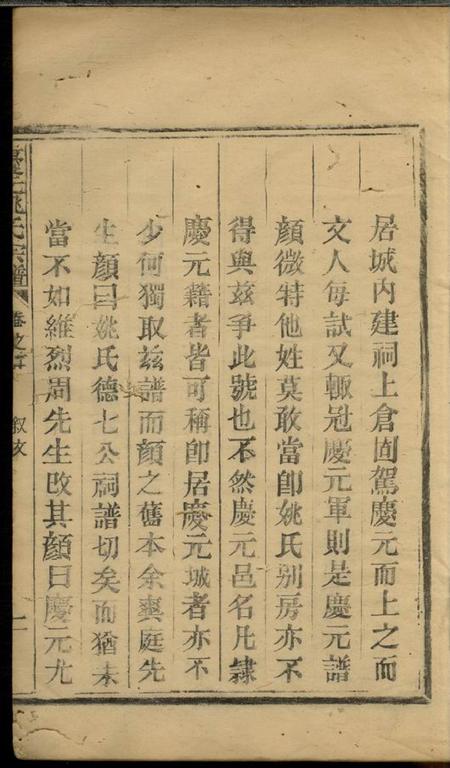 居城內建祠上倉固駕慶元而上之而
文人每試又輒冠慶元軍則是慶元譜
顏微特他姓莫敢當卽姚氏別房亦不
得與兹爭此號也不然慶元邑名凡隸
慶元籍者皆可稱卽居慶元城者亦不
少何獨取兹譜而顏之舊本余爽庭先
生顏曰姚氏德七公祠譜切矣而猶未
當不如維烈周先生改其顏曰慶元尤
姚氏宗譜
卷之
叙文
二